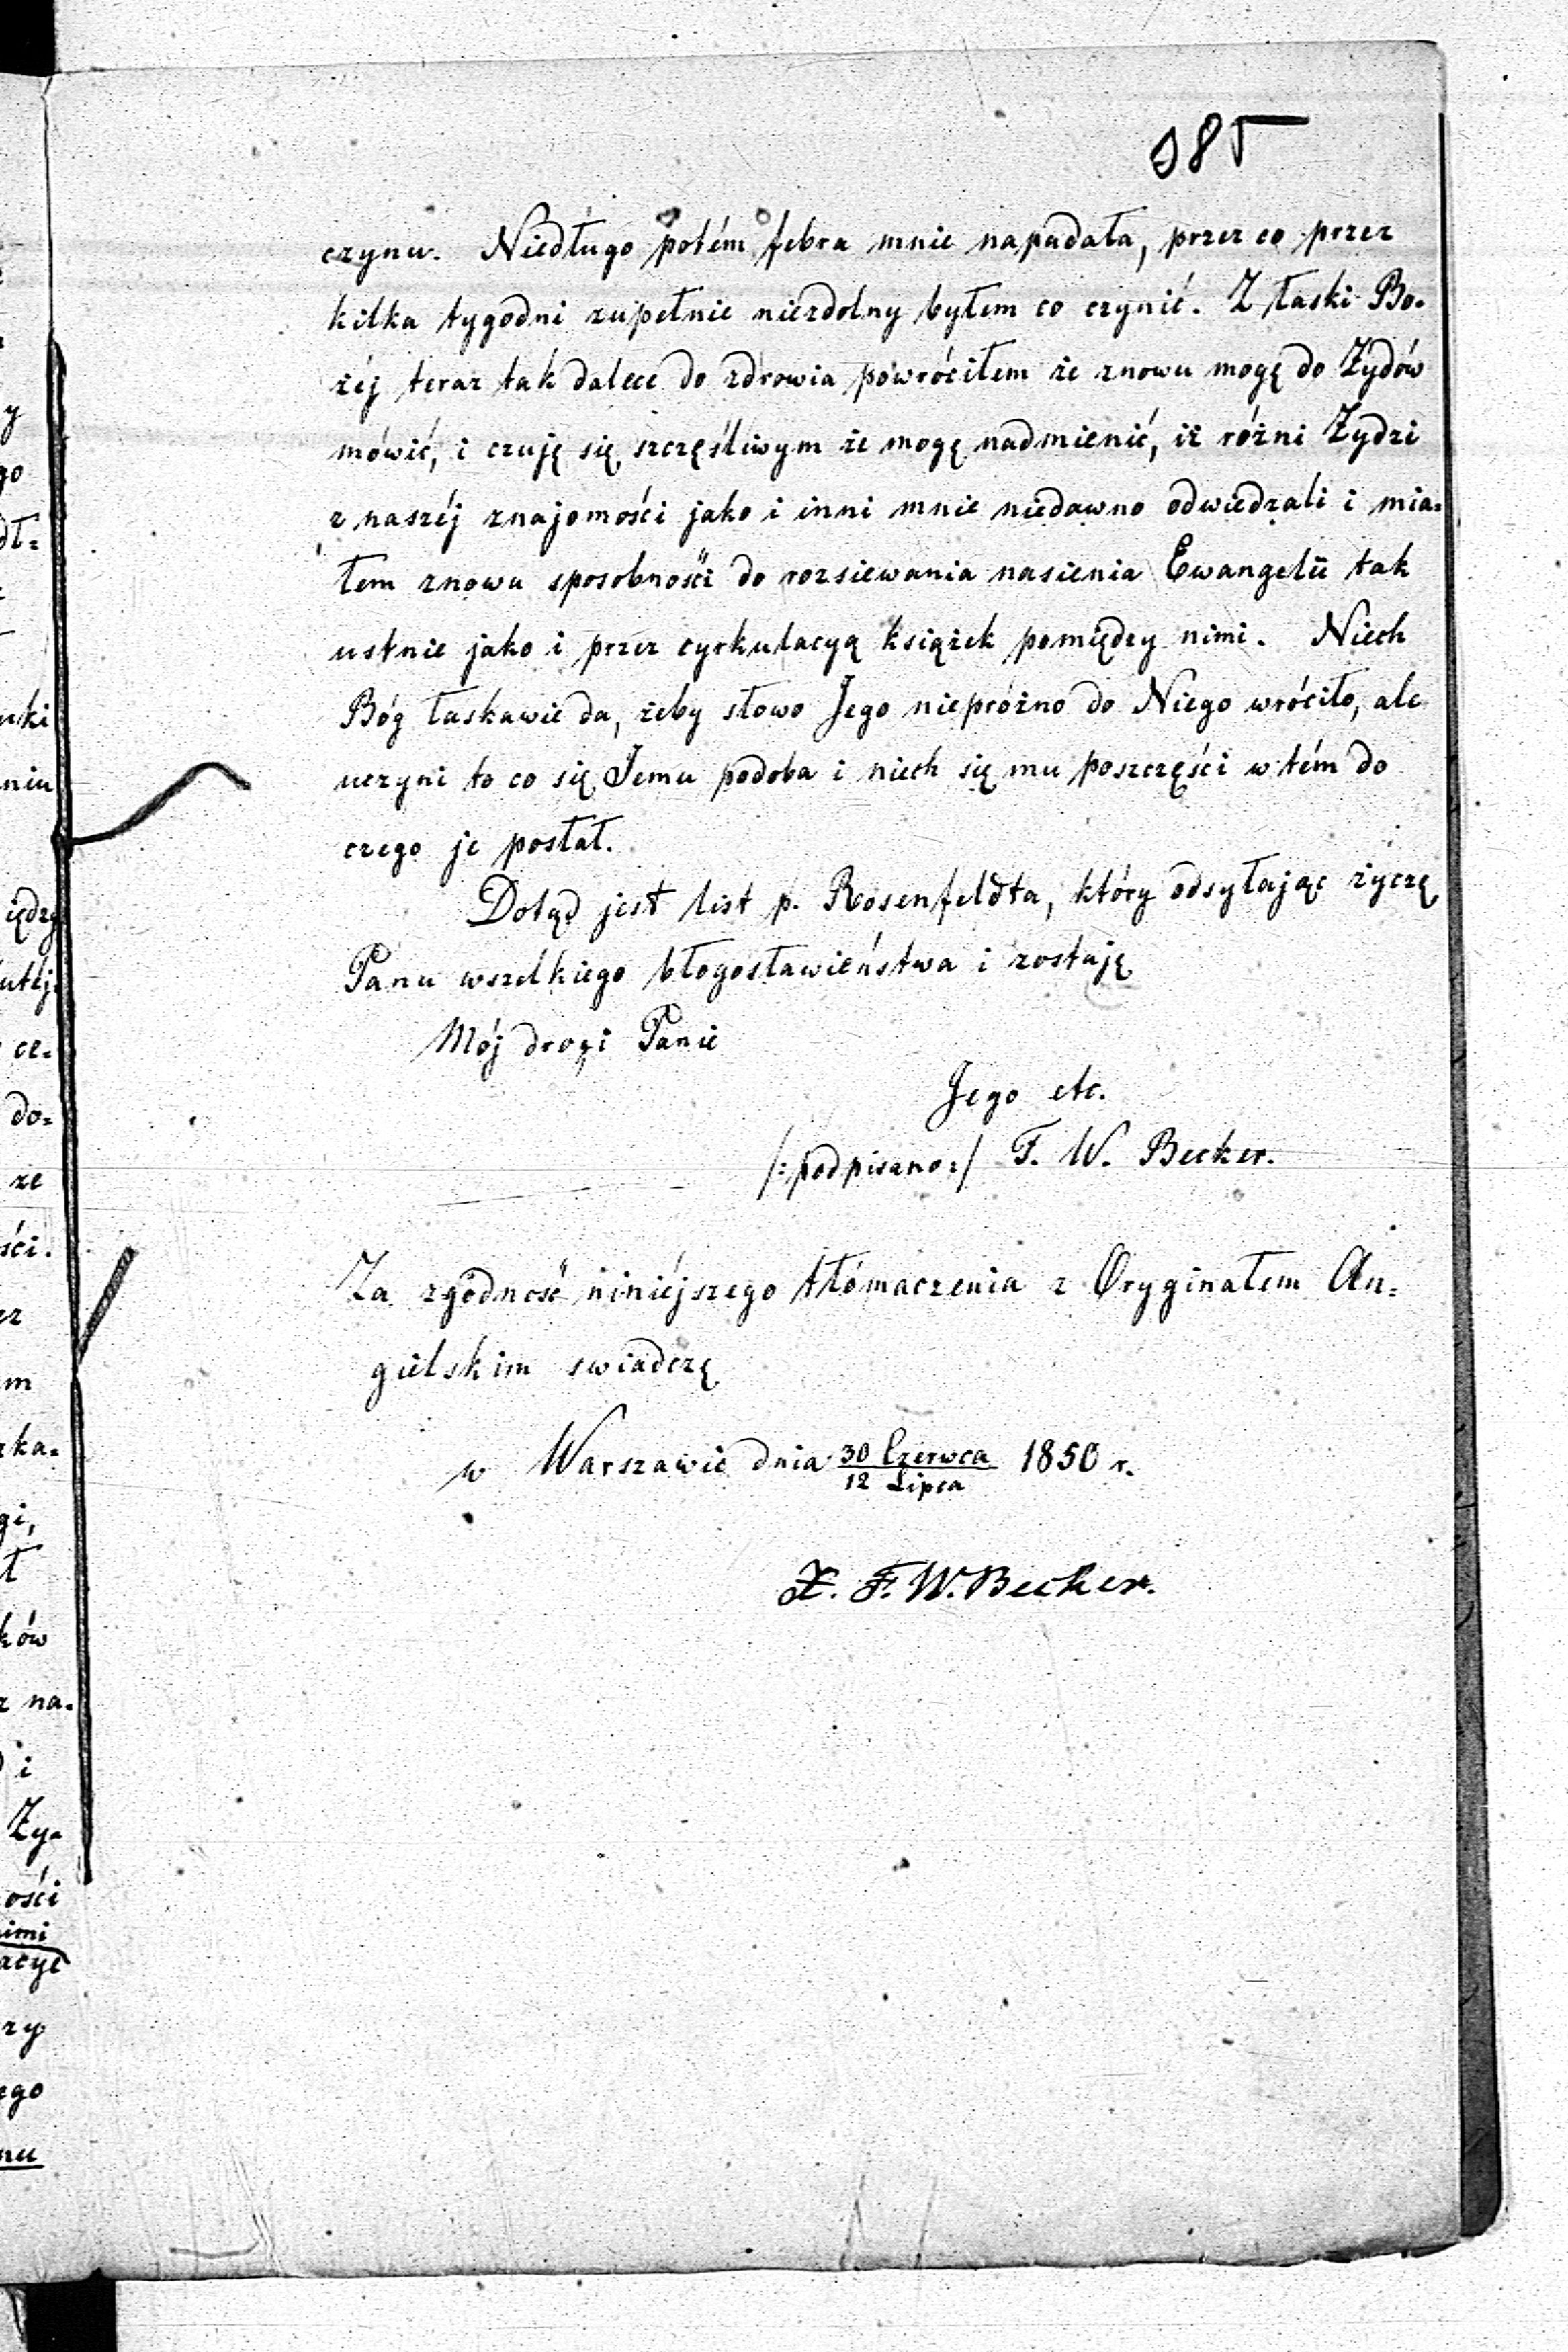 185
czynu. Niedługo potém febra mnie napadała, przez co przez
kilka tygodni zupełnie niezdolny byłem co czynić. Z łaski Bo-
żéj teraz tak dalece do zdrowia powróciłem że znowu mogę do Żydów
mówić, i czuję się szczęśliwym że mogę nadmienić, iż różni Żydzi
z naszéj znajomości jako i inni mnie niedawno odwiedzali i mia=
łem znowu sposobności do rozsiewania nasienia Ewangelii tak
ustnie jako i przez cyrkulacyą książek pomiędzy nimi. Niech
Bóg łaskawie da, żeby słowo Jego niepróżno do Niego wróciło, ale
uczyni to co się Jemu podoba i niech się mu poszczęści w tém do
czego je posłał.
Dotąd jest list p. Rosenfeldta, który odsyłając życzę
Panu wszelkiego błogosławieństwa i zostaję
Mój drogi Panie
Jego etc.
/:podpisano:/ F. W. Becker.
Za zgodność niniéjszego tłómaczenia z Oryginałem An=
gielskim swiadczę
w Warszawie dnia 30 Czerwca / 12 Lipca 1850 r.
X. F. W. Becker.